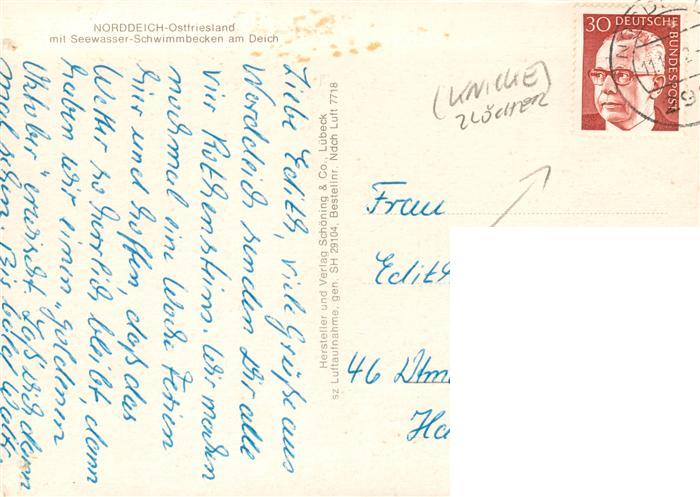 NORDDEICH-Ostfriesland
mit Seewasser-Schwimmbecken am Deich
Liebe Edith, viele Grüße aus
Norddeich senden Dir alle
vier Rothensteins. Wir machen
nochmal eine Woche Ferien
hier und hoffen, daß das
Wetter so herrlich bleibt, dann
haben wir einen "goldenen
Oktober" erwischt. Laß Dich dann
mal sehen. Bis bald
Hersteller und Verlag Schöning & Co., Lübeck
sz Luftaufnahme, gen. SH 29104, Bestellnr. Ndch Luft 7718
(KNICKE)
2 LÖCHER
30 DEUTSCHE BUNDESPOST
Frau
Edith
46 Dtm
Ha